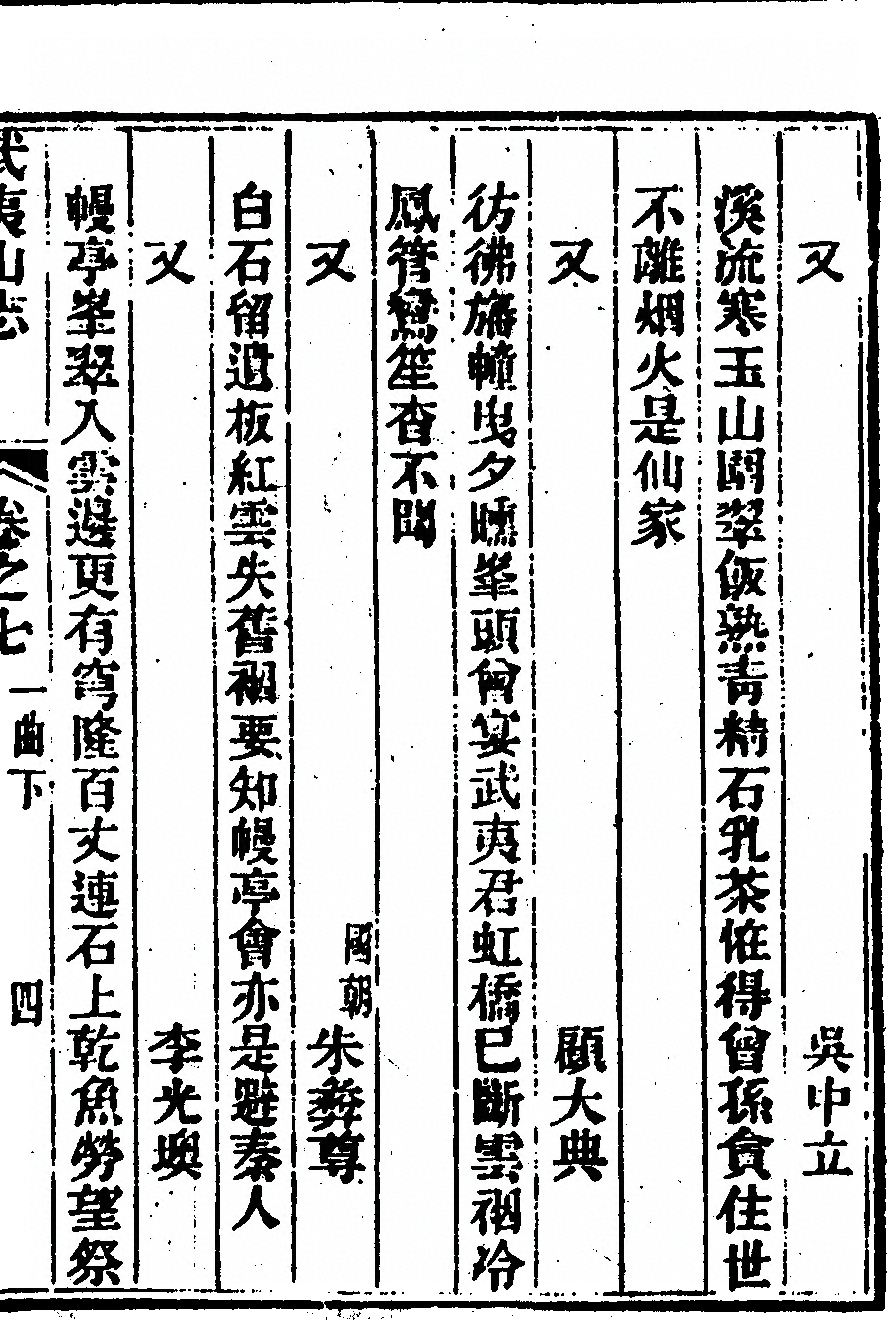 又 吳中立
溪流寒玉山開翠飯熟青精石乳茶恠得曾孫貪住世
不離烟火是仙家
又 顧大典
彷彿旛幢曳夕曛峯頭曾宴武夷君虹橋已斷雲裀冷
鳳管鸞笙杳不聞
又 國朝朱彝尊
白石留遺板紅雲失舊裀要知幔亭會亦是避秦人
又 李光墺
幔亭峯翠入雲邊更有穹隆百丈連石上乾魚勞望祭
武夷山志 卷之七 一曲下 四